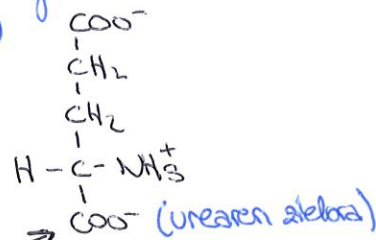 COO⁻
CH₂
CH₂
H - C - NH₃⁺
COO⁻ (urearen zikloa)